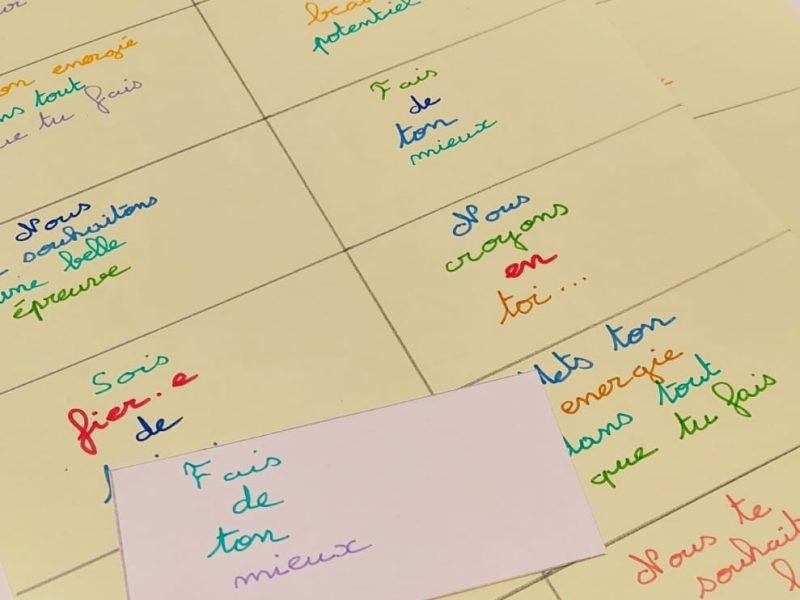 potentiel
énergie
tout
tu fais
Fais
de
ton
mieux
Nous
souhaitons
une belle
épreuve
Nous
croyons
en
toi...
Sois
fier.e
de
Mets ton
energie
dans tout
que tu fais
Fais
de
ton
mieux
Nous te